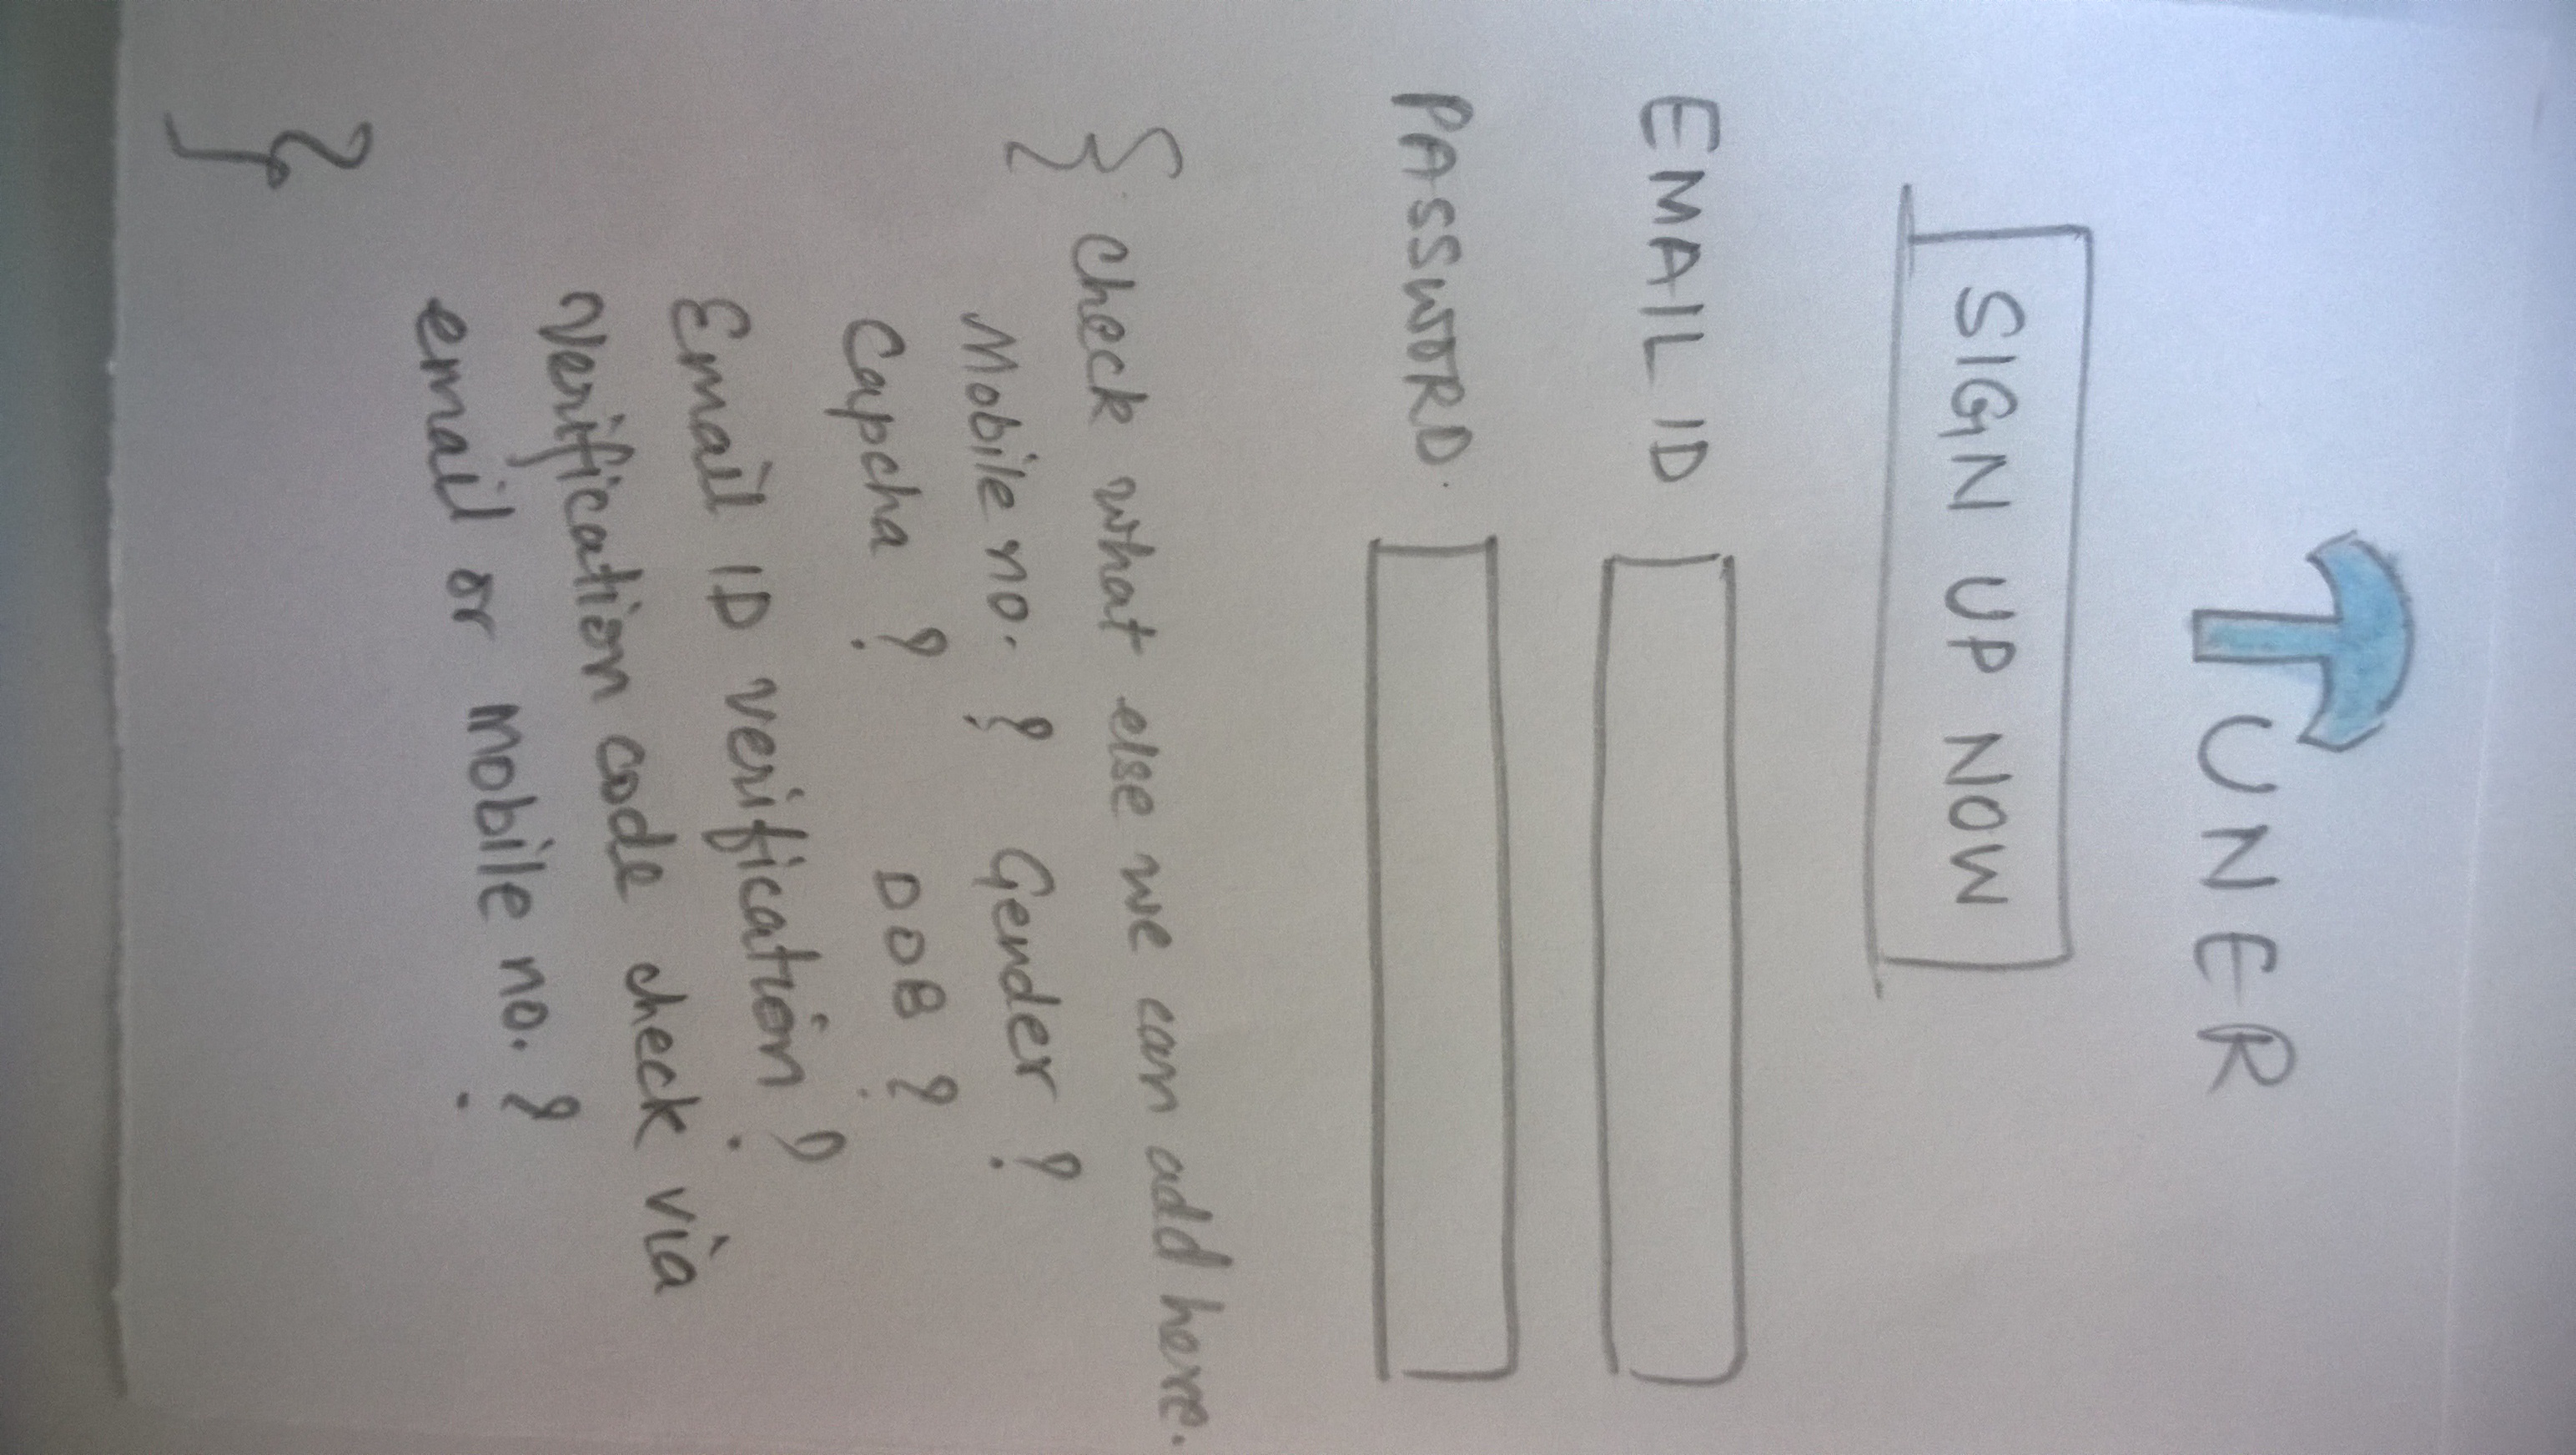 TUNER
SIGN UP NOW
EMAIL ID
PASSWORD.
{ Check what else we can add here.
Mobile no. ? Gender ?
Capcha ? DOB ?
Email ID verification ?
Verification code check via
email or mobile no. ?
}